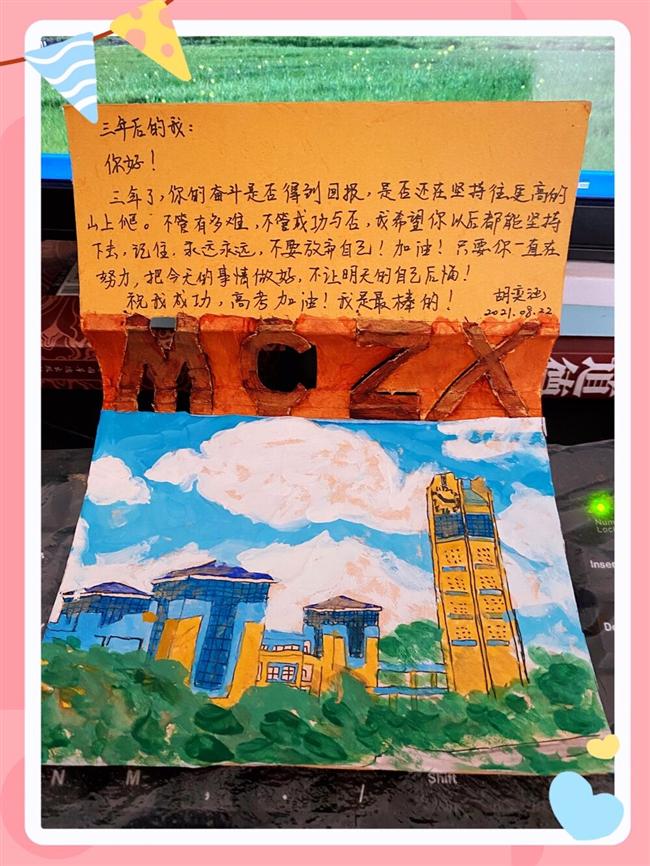 三年后的我：
你好！
三年了，你的奋斗是否得到回报，是否还在坚持往更高的
山上爬。不管有多难，不管成功与否，我希望你以后都能坚持
下去，记住，永远永远，不要放弃自己！加油！只要你一直在
努力，把今天的事情做好，不让明天的自己后悔！
祝我成功，高考加油！我是最棒的！
胡奕
2021.08.22
MCZX
道
Num
Lock
Inser
De
N M , . / Shift